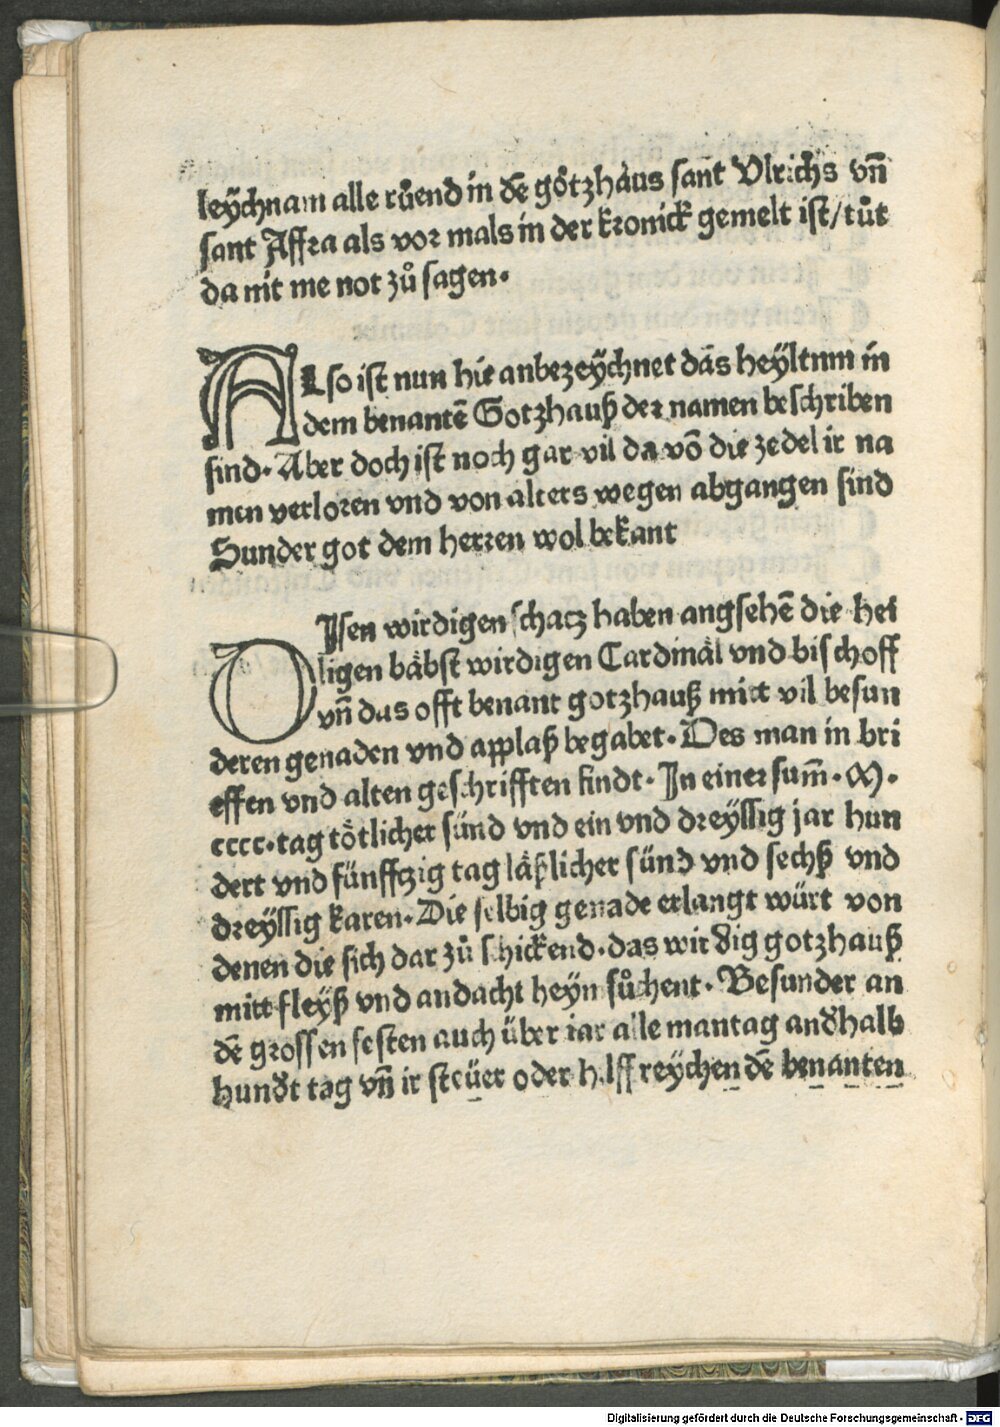 leÿchnam alle ru̇end in dē gȯtzhaus sant Vlrichs vn̄
sant Affra als vor mals in der kronick gemelt ist/tůt
da nit me not zů sagen.
ALso ist nun hie anbezeÿchnet das heÿltum in
dem benantē Gotzhauß der namen beschriben
sind. Aber doch ist noch gar vil da vō die zedel ir na
men verloren vnd von alters wegen abgangen sind
Sunder got dem herren wol bekant
DIsen wirdigen schatz haben angsehē die hei
ligen bäbst wirdigen Cardinäl vnd bischoff
vn̄ das offt benant gotzhauß mitt vil besun
deren genaden vnd applaß begabet. Des man in bri
effen vnd alten geschrifften findt. In einer sum̄. M.
cccc. tag tötlicher sünd vnd ein vnd dreÿssig jar hun
dert vnd fünfftzig tag läßlicher sünd vnd sechß vnd
dreÿssig karen. Die selbig genade erlangt würt von
denen die sich dar zů schickend. das wirdig gotzhauß
mitt fleÿß vnd andacht heÿn sůchent. Besunder an
dē grossen festen auch über iar alle mantag andhalb
hundt tag vn̄ ir steüer oder hilff reÿchen dē benanten
Digitalisierung gefördert durch die Deutsche Forschungsgemeinschaft - DFG